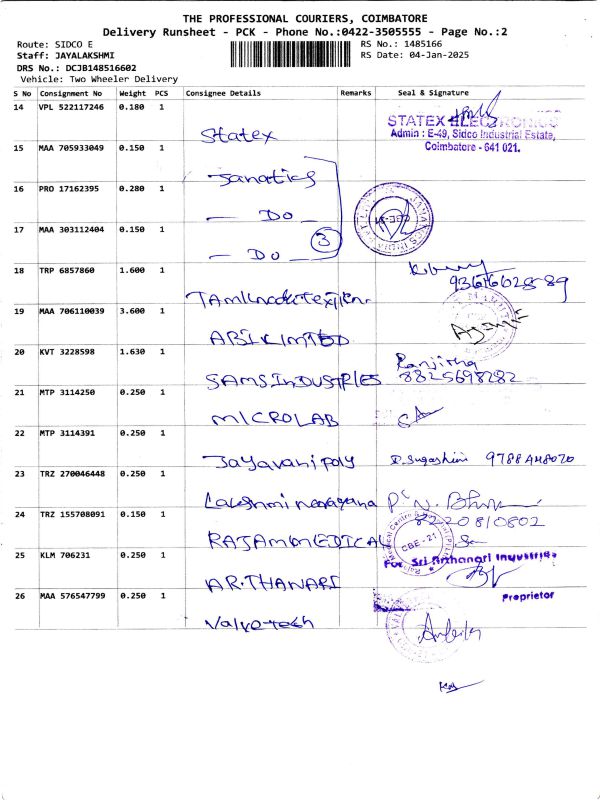 THE PROFESSIONAL COURIERS, COIMBATORE
Delivery Runsheet - PCK - Phone No.:0422-3505555 - Page No.:2
Route: SIDCO E
Staff: JAYALAKSHMI
DRS No.: DCJB148516602
Vehicle: Two Wheeler Delivery
RS No.: 1485166
RS Date: 04-Jan-2025
S No Consignment No Weight PCS Consignee Details Remarks Seal & Signature
14 VPL 522117246 0.180 1 Statex
STATEX ELECTRONICS
Admin : E-49, Sidco Industrial Estate,
Coimbatore - 641 021.
15 MAA 705933049 0.150 1 Janatics
16 PRO 17162395 0.280 1 — Do —
CBE-21
17 MAA 303112404 0.150 1 — Do —
3
18 TRP 6857860 1.600 1
19 MAA 706110039 3.600 1 ABI LIMITED
20 KVT 3228598 1.630 1 SAMS INDUSTRIES
Ranjitha
8825698282
21 MTP 3114250 0.250 1 MICROLAB
22 MTP 3114391 0.250 1 Jayavani poly
23 TRZ 270046448 0.250 1 Lakshmi narayana
8220810802
24 TRZ 155708091 0.150 1 RAJAM MEDICAL
CBE - 21
25 KLM 706231 0.250 1 AR.THANARI
For Sri Arthanari Industries
Proprietor
26 MAA 576547799 0.250 1 Valve tech